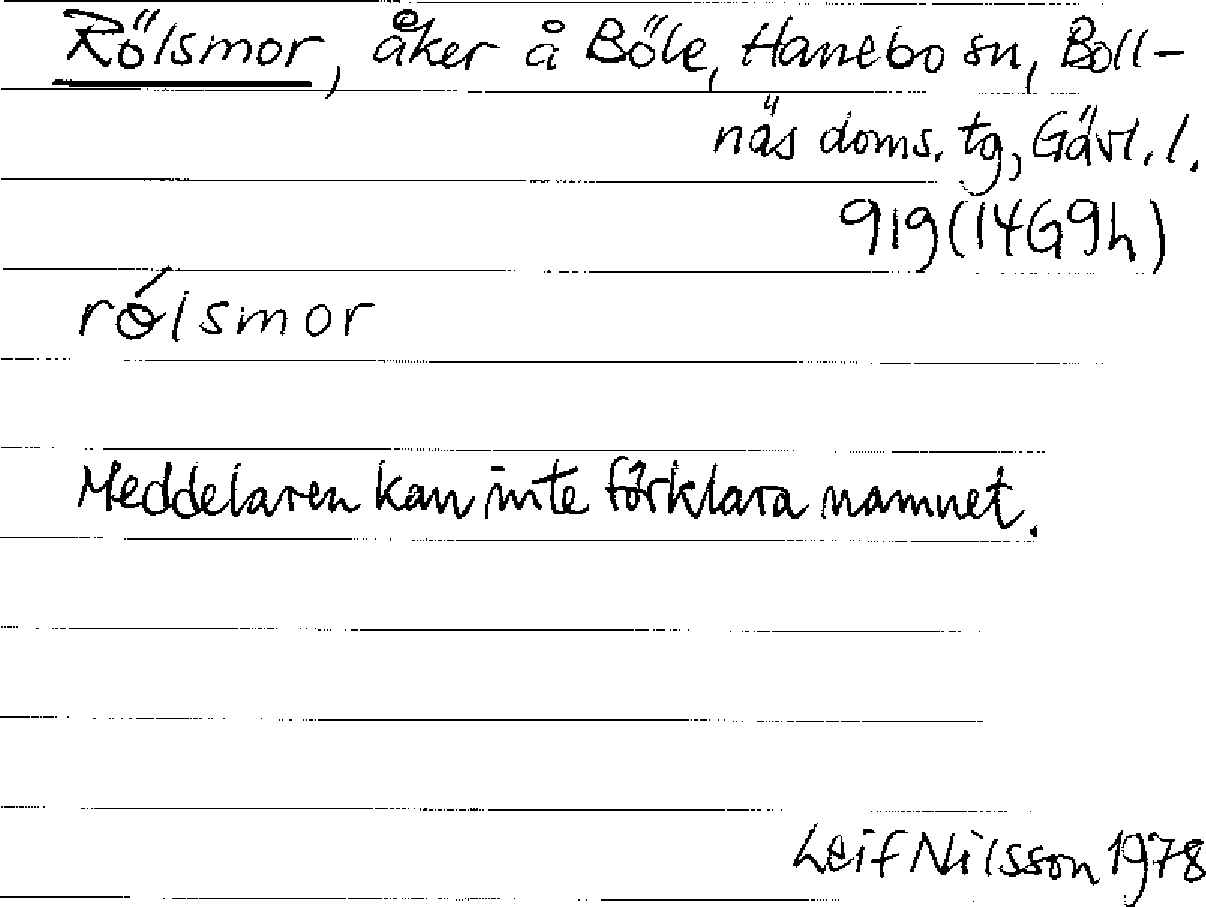 Rölsmor, åker å Böle, Hanebo sn, Boll-
näs doms. tg, Gävl. l.
919 (14G9h)
rɵ́lsmor
Meddelaren kan inte förklara namnet.
Leif Nilsson 1978